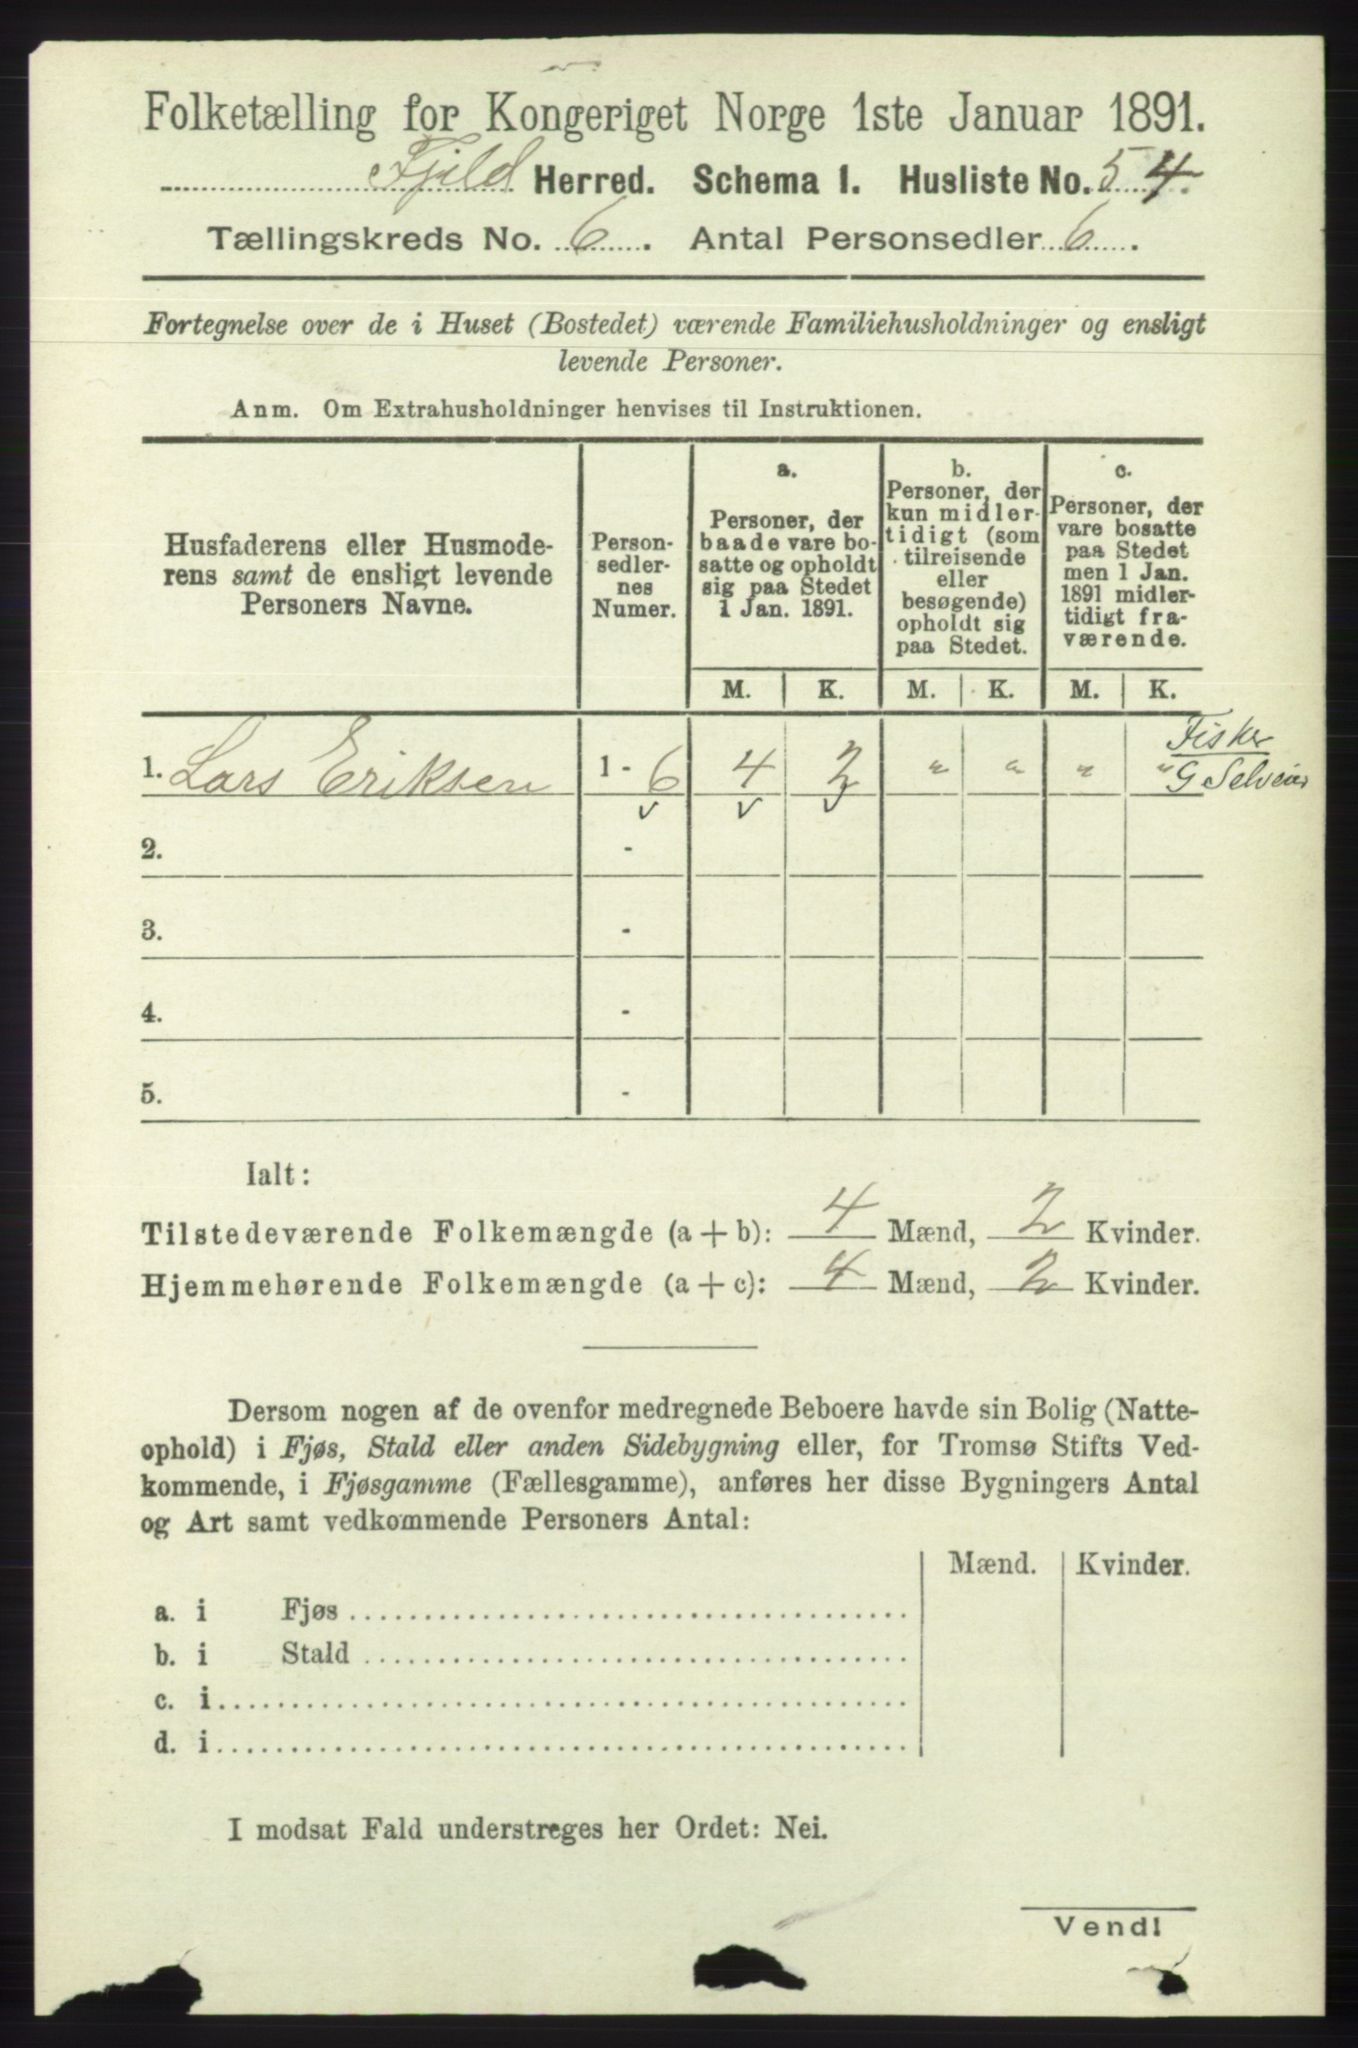 Folketælling for Kongeriget Norge 1ste Januar 1891.
Fjeld Herred. Schema 1. Husliste No. 54.
Tællingskreds No. 6. Antal Personsedler 6.
Fortegnelse over de i Huset (Bostedet) værende Familiehusholdninger og ensligt
levende Personer.
Anm. Om Extrahusholdninger henvises til Instruktionen.
Husfaderens eller Husmode-
rens samt de ensligt levende
Personers Navne.
Person-
sedler-
nes
Numer.
a.
Personer, der
baade vare bo-
satte og opholdt
sig paa Stedet
1 Jan. 1891.
b.
Personer, der
kun midler-
tidigt (som
tilreisende
eller
besøgende)
opholdt sig
paa Stedet.
c.
Personer, der
vare bosatte
paa Stedet
men 1 Jan.
1891 midler-
tidigt fra-
værende.
M. K. M. K. M. K.
1. Lars Eriksen 1 - 6 4 2 " " " "
Fisker
G Selveier
2. -
3. -
4. -
5. -
Ialt:
Tilstedeværende Folkemængde (a + b): 4 Mænd, 2 Kvinder.
Hjemmehørende Folkemængde (a + c): 4 Mænd, 2 Kvinder.
Dersom nogen af de ovenfor medregnede Beboere havde sin Bolig (Natte-
ophold) i Fjøs, Stald eller anden Sidebygning eller, for Tromsø Stifts Ved-
kommende, i Fjøsgamme (Fællesgamme), anføres her disse Bygningers Antal
og Art samt vedkommende Personers Antal:
Mænd. Kvinder.
a. i Fjøs
b. i Stald
c. i
d. i
I modsat Fald understreges her Ordet: Nei.
Vend!